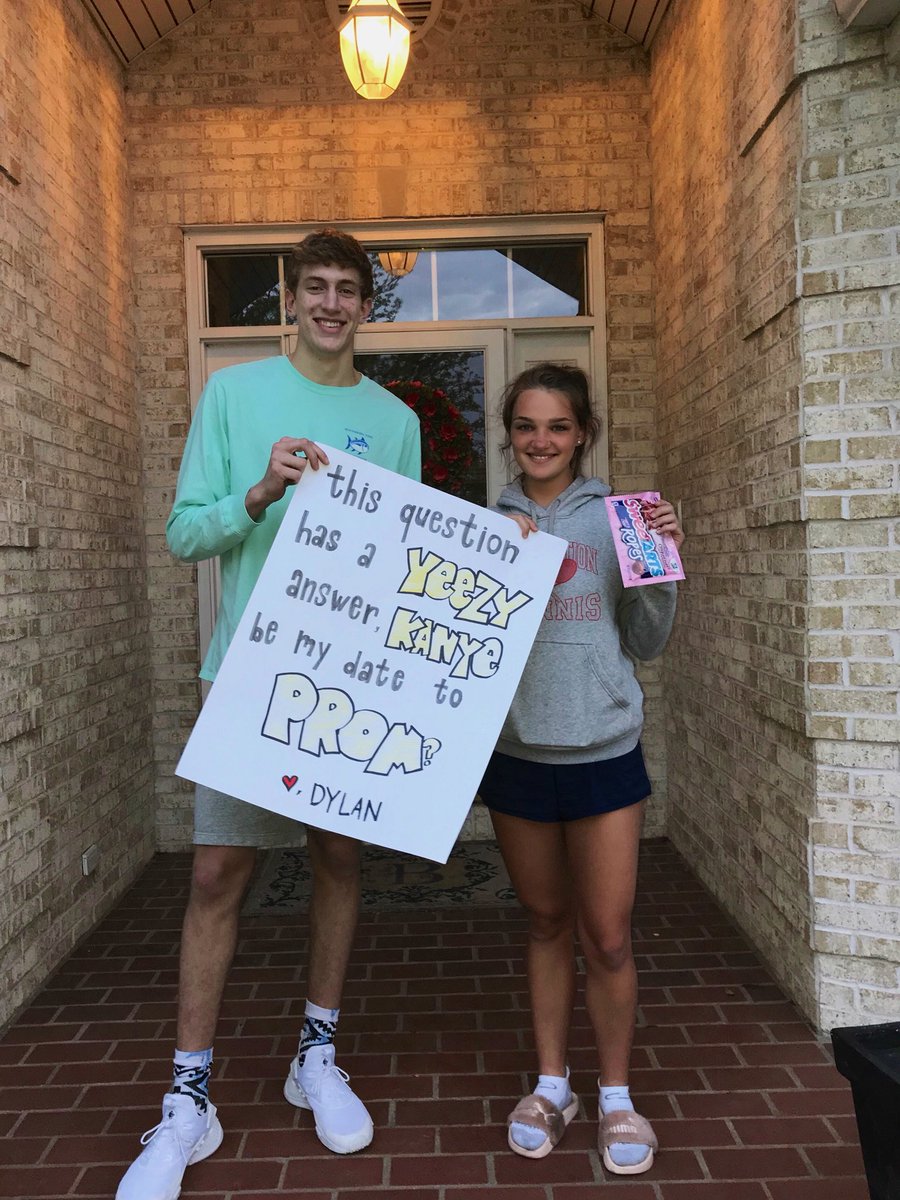 this question
has a YEEZY
answer, KANYE
be my date to
PROM?
❤, DYLAN
SweeTARTS
ROPES
PUMA
B